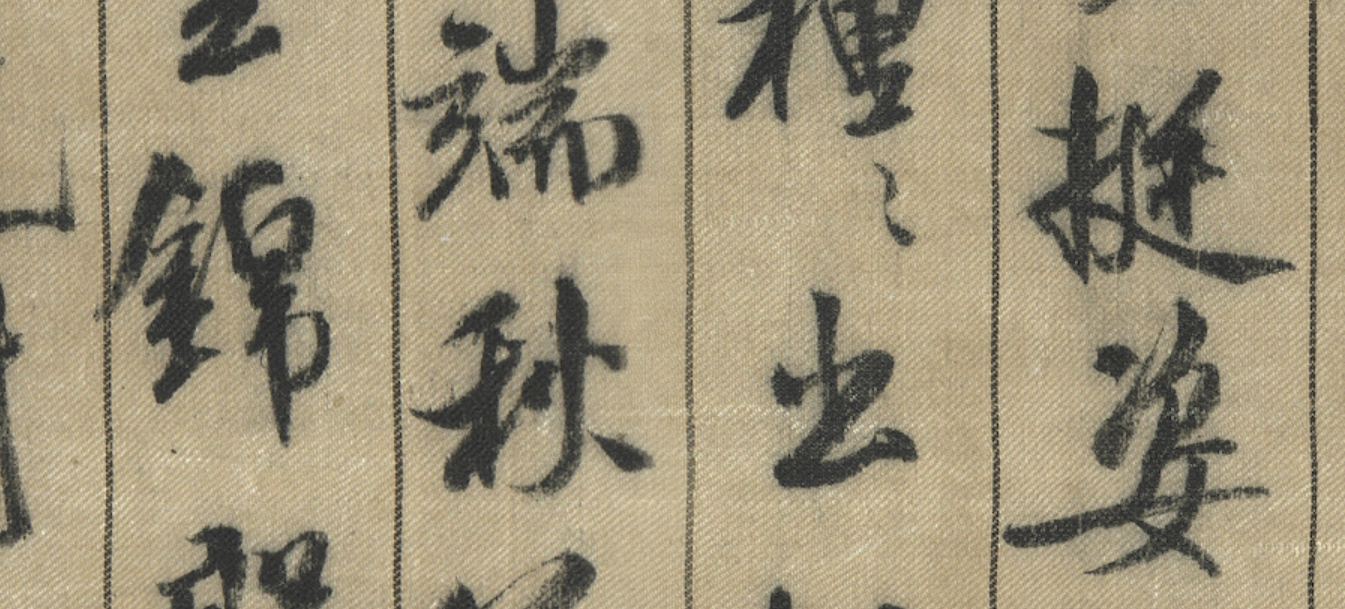 挺姿
種〻出
端秋
錦